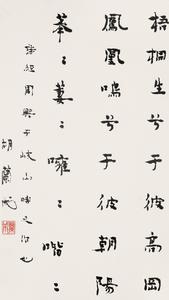 梧桐生兮于彼高岡
鳳凰鳴兮于彼朝陽
菶：萋：噰：喈：
經周興于岐山時之治也
胡蘭成